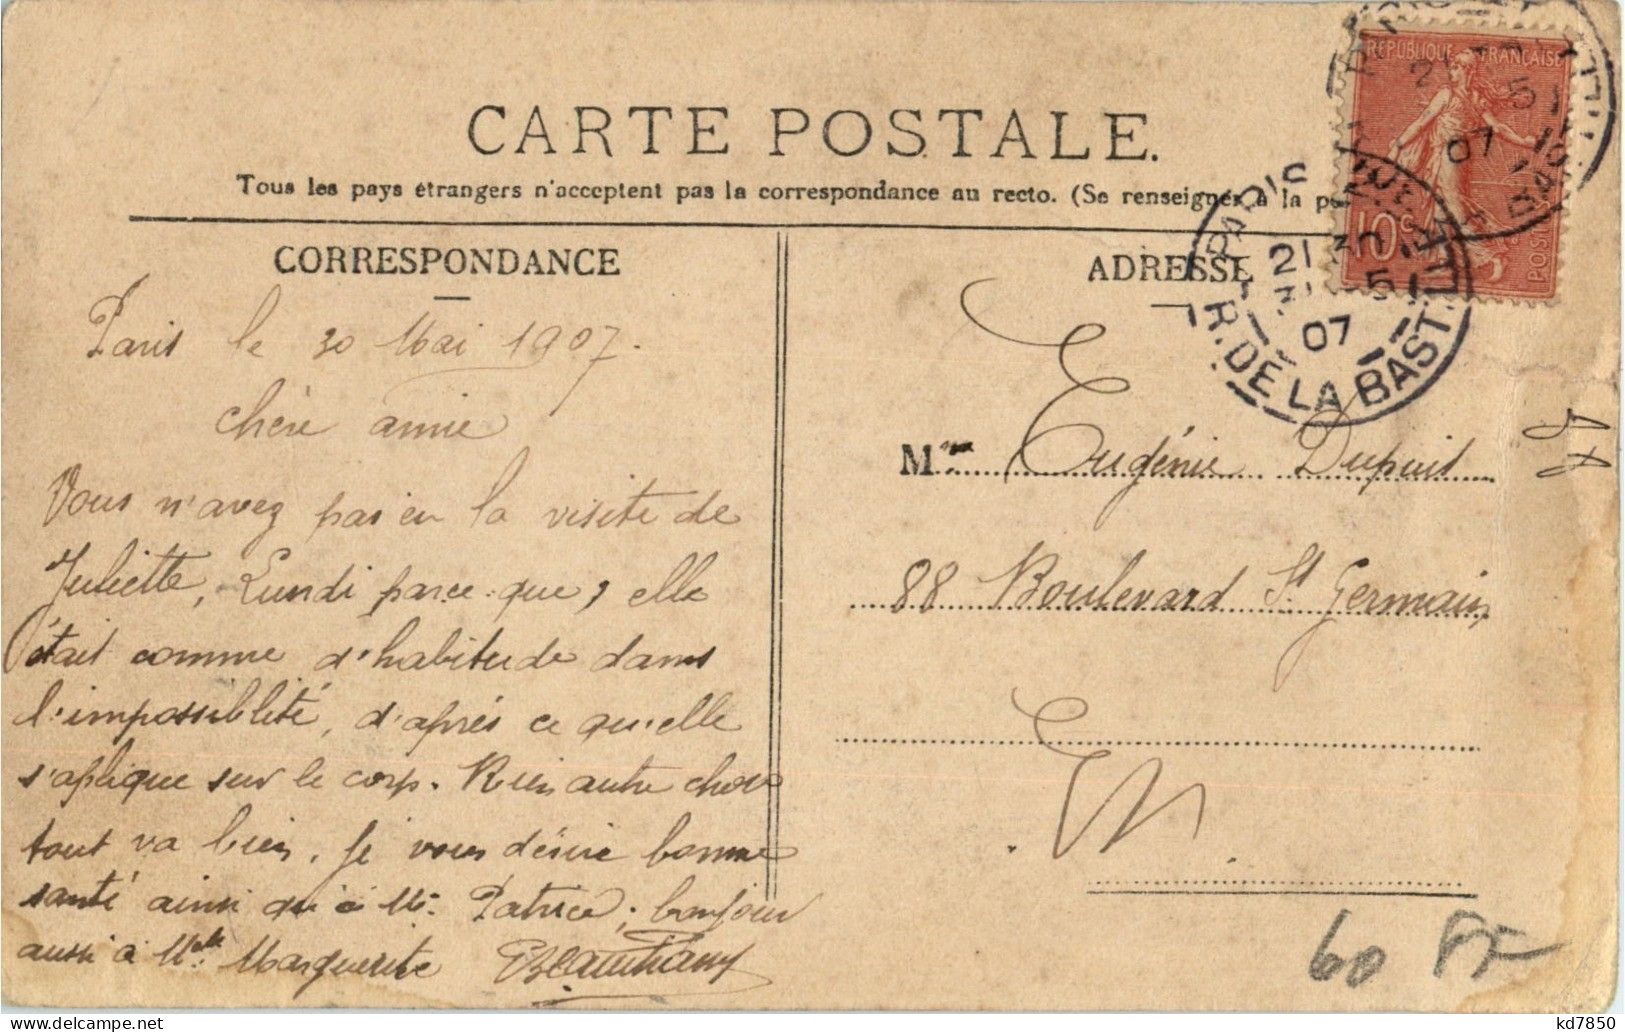 CARTE POSTALE.
Tous les pays étrangers n'acceptent pas la correspondance au recto. (Se renseigner à la
CORRESPONDANCE
Paris le 30 Mai 1907.
chère amie
Vous n'avez pas eu la visite de
Juliette, Lundi parce que, elle
était comme d'habitude dans
l'impossiblité, d'après ce qu'elle
s'aplique sur le corp. Rien autre chose
tout va bien. Je vous désire bonne
santé ainsi qu'à Mr. Patrice, bonjour
aussi à Melle Marguerite
ADRESSE
Mme Eugénie Dupuis
88 Boulevard St Germain
En
RÉPUBLIQUE FRANÇAISE
10c
POSTES
PARIS
21 30
5
07
R. DE LA BASTILLE
21
5
07
60 FF
kd7850